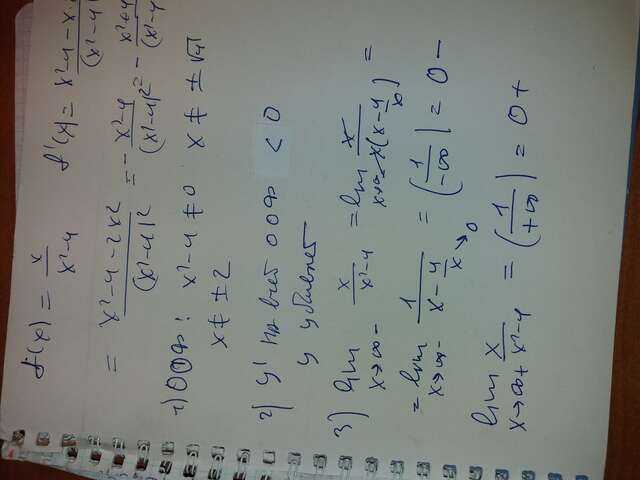 f(x) = x / (x²-4)    f'(x) = (x²-4 - x·
= (x²-4-2x²) / (x²-4)² = - (x²-4) / (x²-4)² = - (x²+4) / (x²-4
1) ООФ: x²-4 ≠ 0   x ≠ ±√4
x ≠ ±2
2) y' на всей ООФ < 0
y убывает
3) lim x→∞- x / (x²-4) = lim x→∞- x / (x(x - 4/x)) =
= lim x→∞- 1 / (x - 4/x →0) = (1 / -∞) = 0-
lim x→∞+ x / (x²-4) = (1 / +∞) = 0+